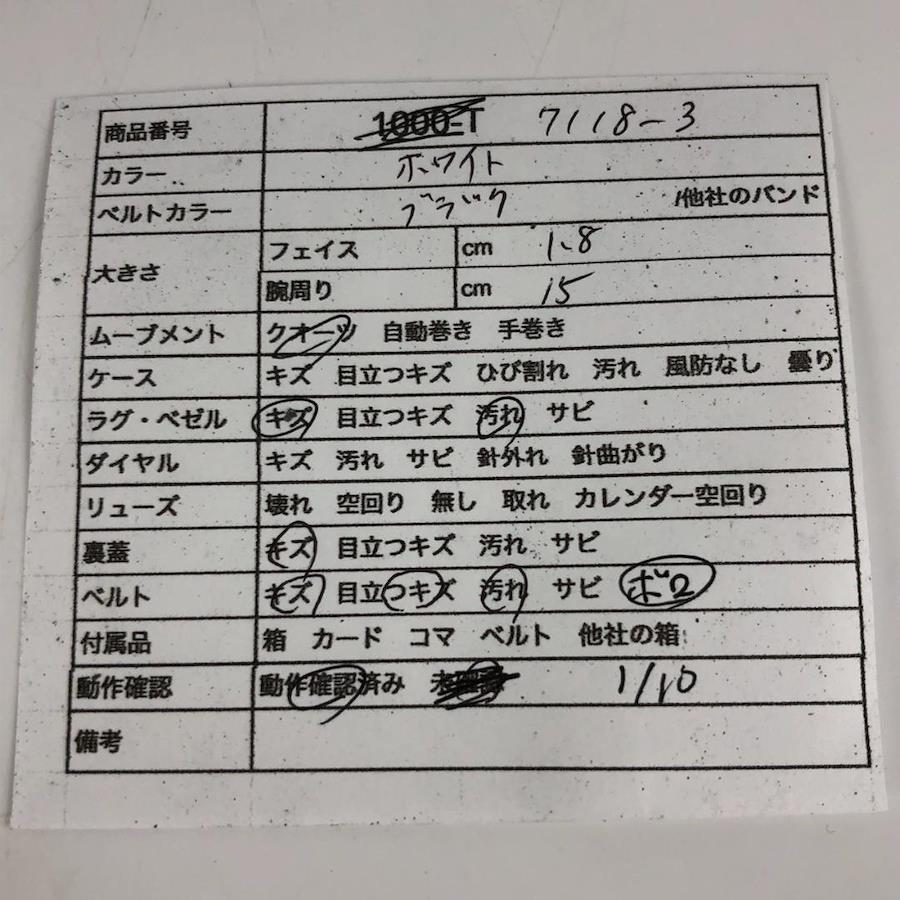 商品番号 1000-T 7118-3
カラー ホワイト
ベルトカラー ブラック /他社のバンド
大きさ フェイス cm 1.8
腕周り cm 15
ムーブメント クオーツ 自動巻き 手巻き
ケース キズ 目立つキズ ひび割れ 汚れ 風防なし 曇り
ラグ・ベゼル キズ 目立つキズ 汚れ サビ
ダイヤル キズ 汚れ サビ 針外れ 針曲がり
リューズ 壊れ 空回り 無し 取れ カレンダー空回り
裏蓋 キズ 目立つキズ 汚れ サビ
ベルト キズ 目立つキズ 汚れ サビ ボロ
付属品 箱 カード コマ ベルト 他社の箱
動作確認 動作確認済み 1/10
備考